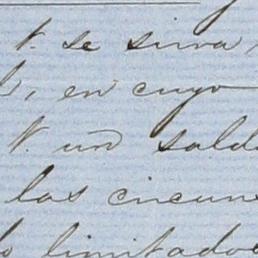 V. se sirva,
en cuyo
V. un sald
las circun
limitado